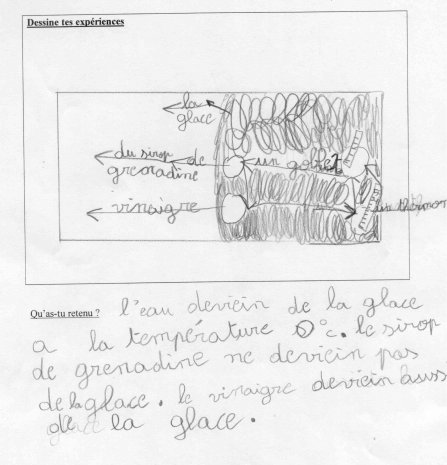 Dessine tes expériences
la
glace
du sirop de un gobelet
grenadine
vinaigre
un thermom
Qu'as-tu retenu ? l'eau devicin de la glace
a la température 0°c. le sirop
de grenadine ne devicin pas
de la glace. le vinaigre devicin auss
de la glace.